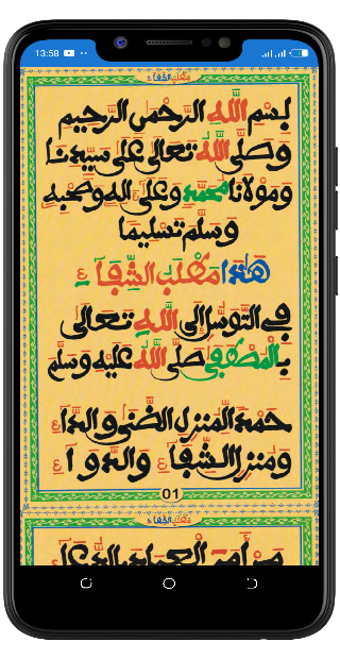 13:58
بسم الله الرحمن الرحيم
وصلى الله تعالى على سيدنا
ومولانا محمد وعلى اله وصحبه
وسلم تسليما
هذا مغلب الشفاء
في التوسل الى الله تعالى
بالمصطفى صلى الله عليه وسلم
حمدا لمنزل الضنى والداء
ومنزل الشفاء والدواء
01